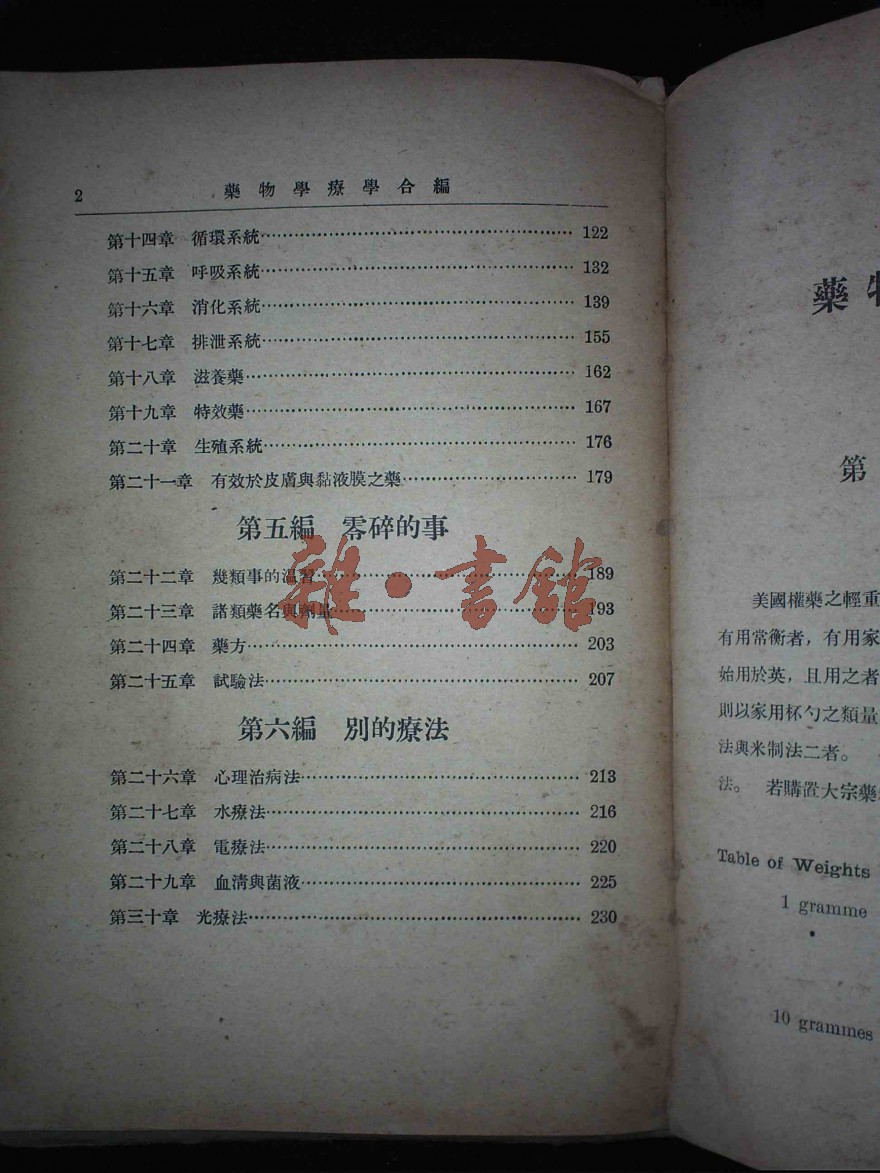 2 藥物學療學合編
第十四章 循環系統 122
第十五章 呼吸系統 132
第十六章 消化系統 139
第十七章 排泄系統 155
第十八章 滋養藥 162
第十九章 特效藥 167
第二十章 生殖系統 176
第二十一章 有效於皮膚與黏液膜之藥 179
第五編 零碎的事
第二十二章 幾類事的溫習 189
第二十三章 諸類藥名與劑量 193
第二十四章 藥方 203
第二十五章 試驗法 207
第六編 別的療法
第二十六章 心理治病法 213
第二十七章 水療法 216
第二十八章 電療法 220
第二十九章 血清與菌液 225
第三十章 光療法 230
雜·書館
藥物
第
美國權藥之輕重
有用常衡者，有用家
始用於英，且用之者
則以家用杯勺之類量
法與米制法二者。
法。 若購置大宗藥
Table of Weights
1 gramme
10 grammes